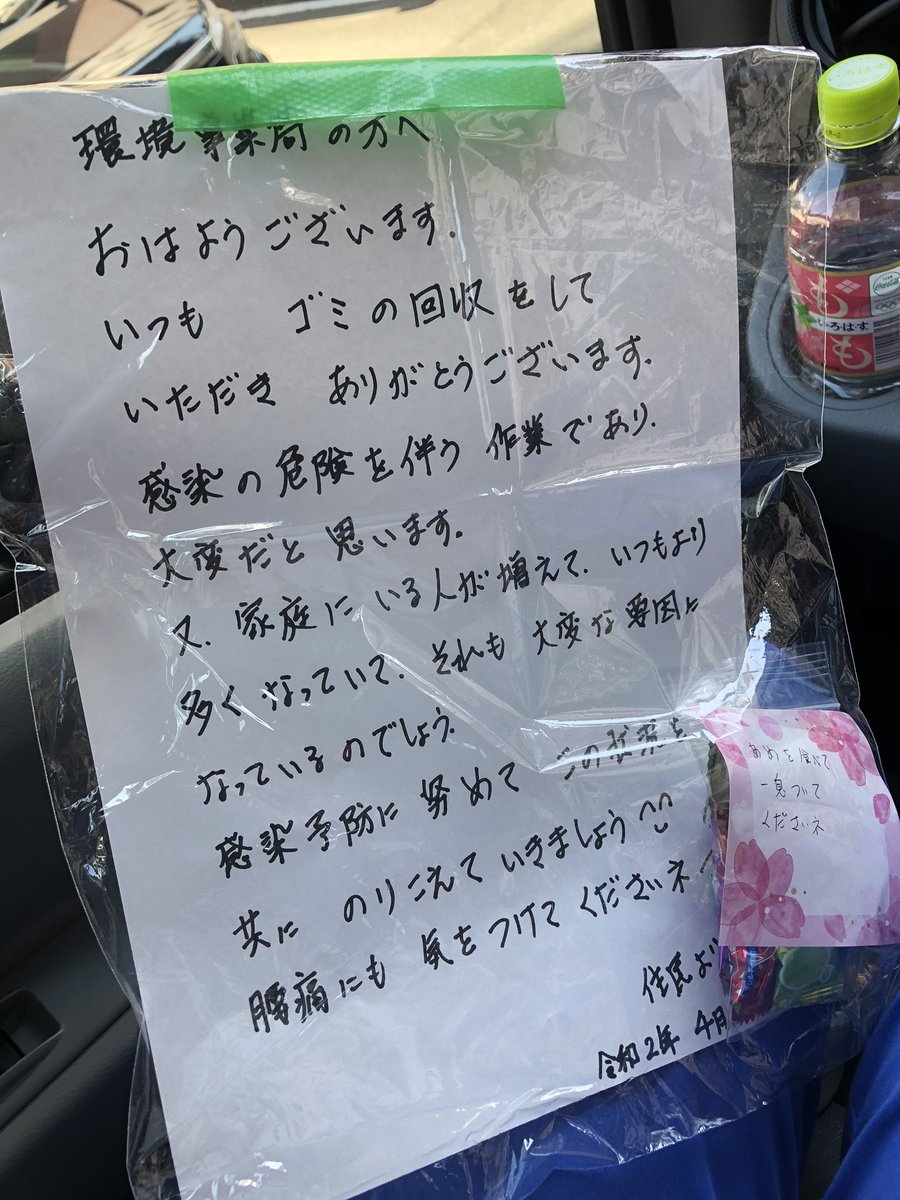 環境事業局の方へ
おはようございます.
いつも ゴミの回収をして
いただき ありがとうございます.
感染の危険を伴う 作業であり.
大変だと思います.
又、家庭にいる人が増えて、いつもより
多くなっていて、それも大変な要因に
なっているのでしょう.
感染予防に努めて この状況を
共に のりこえていきましょう
腰痛にも 気をつけてくださいネ
住民より
令和2年 4月
あめを食べて
一息ついて
くださいネ
もも
いろはす
Coca-Cola